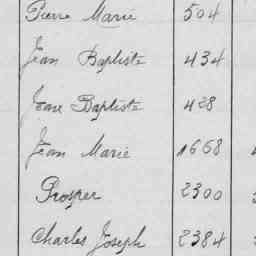 Pierre Marie 504
Jean Baptiste 434
Jean Baptiste 428
Jean Marie 1668
Prosper 2300
Charles Joseph 2384